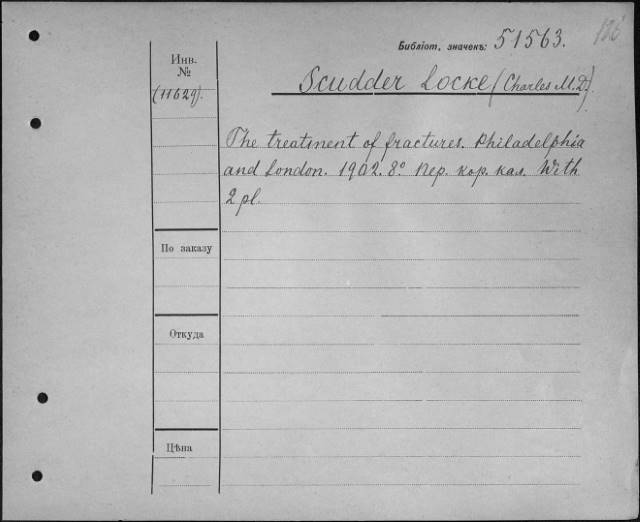 Библіот. значекъ: 51563.
Инв.
№
(11629).
Scudder Locke (Charles M.D.)
The treatment of fractures. Philadelphia
and London. 1902. 8° Пер. кор. кал. With
2 pl.
По заказу
Откуда
Цѣна